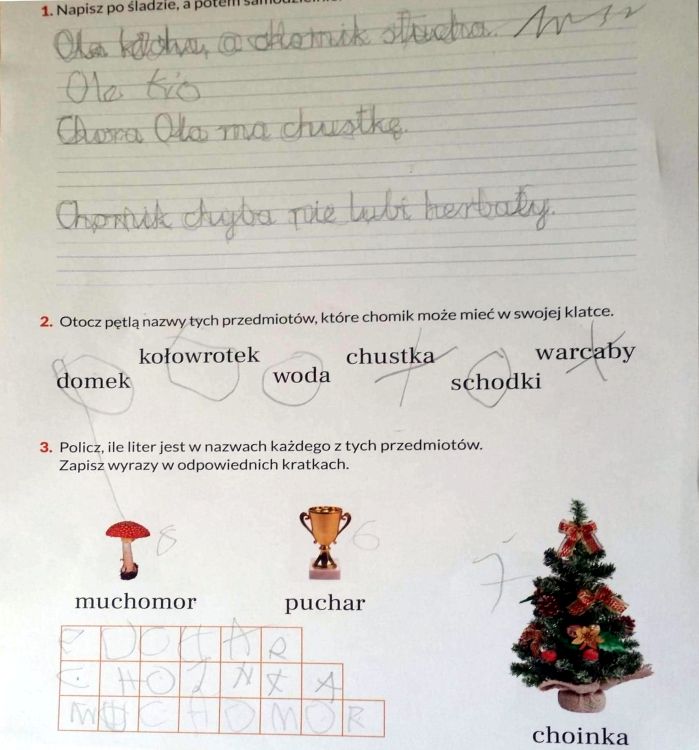 1. Napisz po śladzie, a potem samodzielnie.
Ola kicha, a chomik słucha.
Ola
Chora Ola ma chustkę.
Chomik chyba nie lubi herbaty.
2. Otocz pętlą nazwy tych przedmiotów, które chomik może mieć w swojej klatce.
domek kołowrotek woda chustka schodki warcaby
3. Policz, ile liter jest w nazwach każdego z tych przedmiotów.
Zapisz wyrazy w odpowiednich kratkach.
8 6 7
muchomor puchar
choinka
PUCHAR
CHOINKA
MUCHOMOR